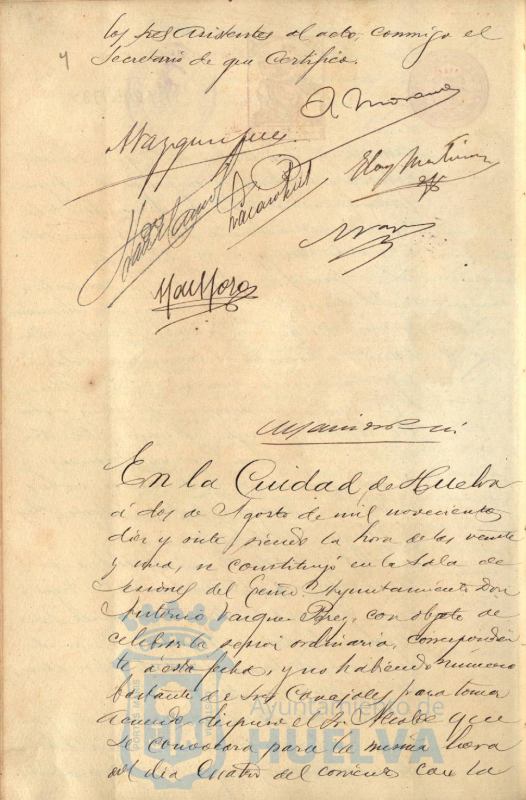 los tres asistentes al acto, conmigo el
Secretario de que certifico.
A Moreno
En la Ciudad de Huelva
á dos de Agosto de mil novecientos
diez y siete siendo la hora de las veinte
y una, se constituyó en la Sala de
sesiones del Excmo. Ayuntamiento Don
Antonio Vazquez Perez, con objeto de
celebrar la sesión ordinaria, correspondien
te á esta fecha, y no habiendo número
bastante de Sres Concejales para tomar
acuerdo dispuso el Sr. Alcalde que
se convocara para la misma hora
del dia cuatro del corriente con la
Ayuntamiento de
HUELVA